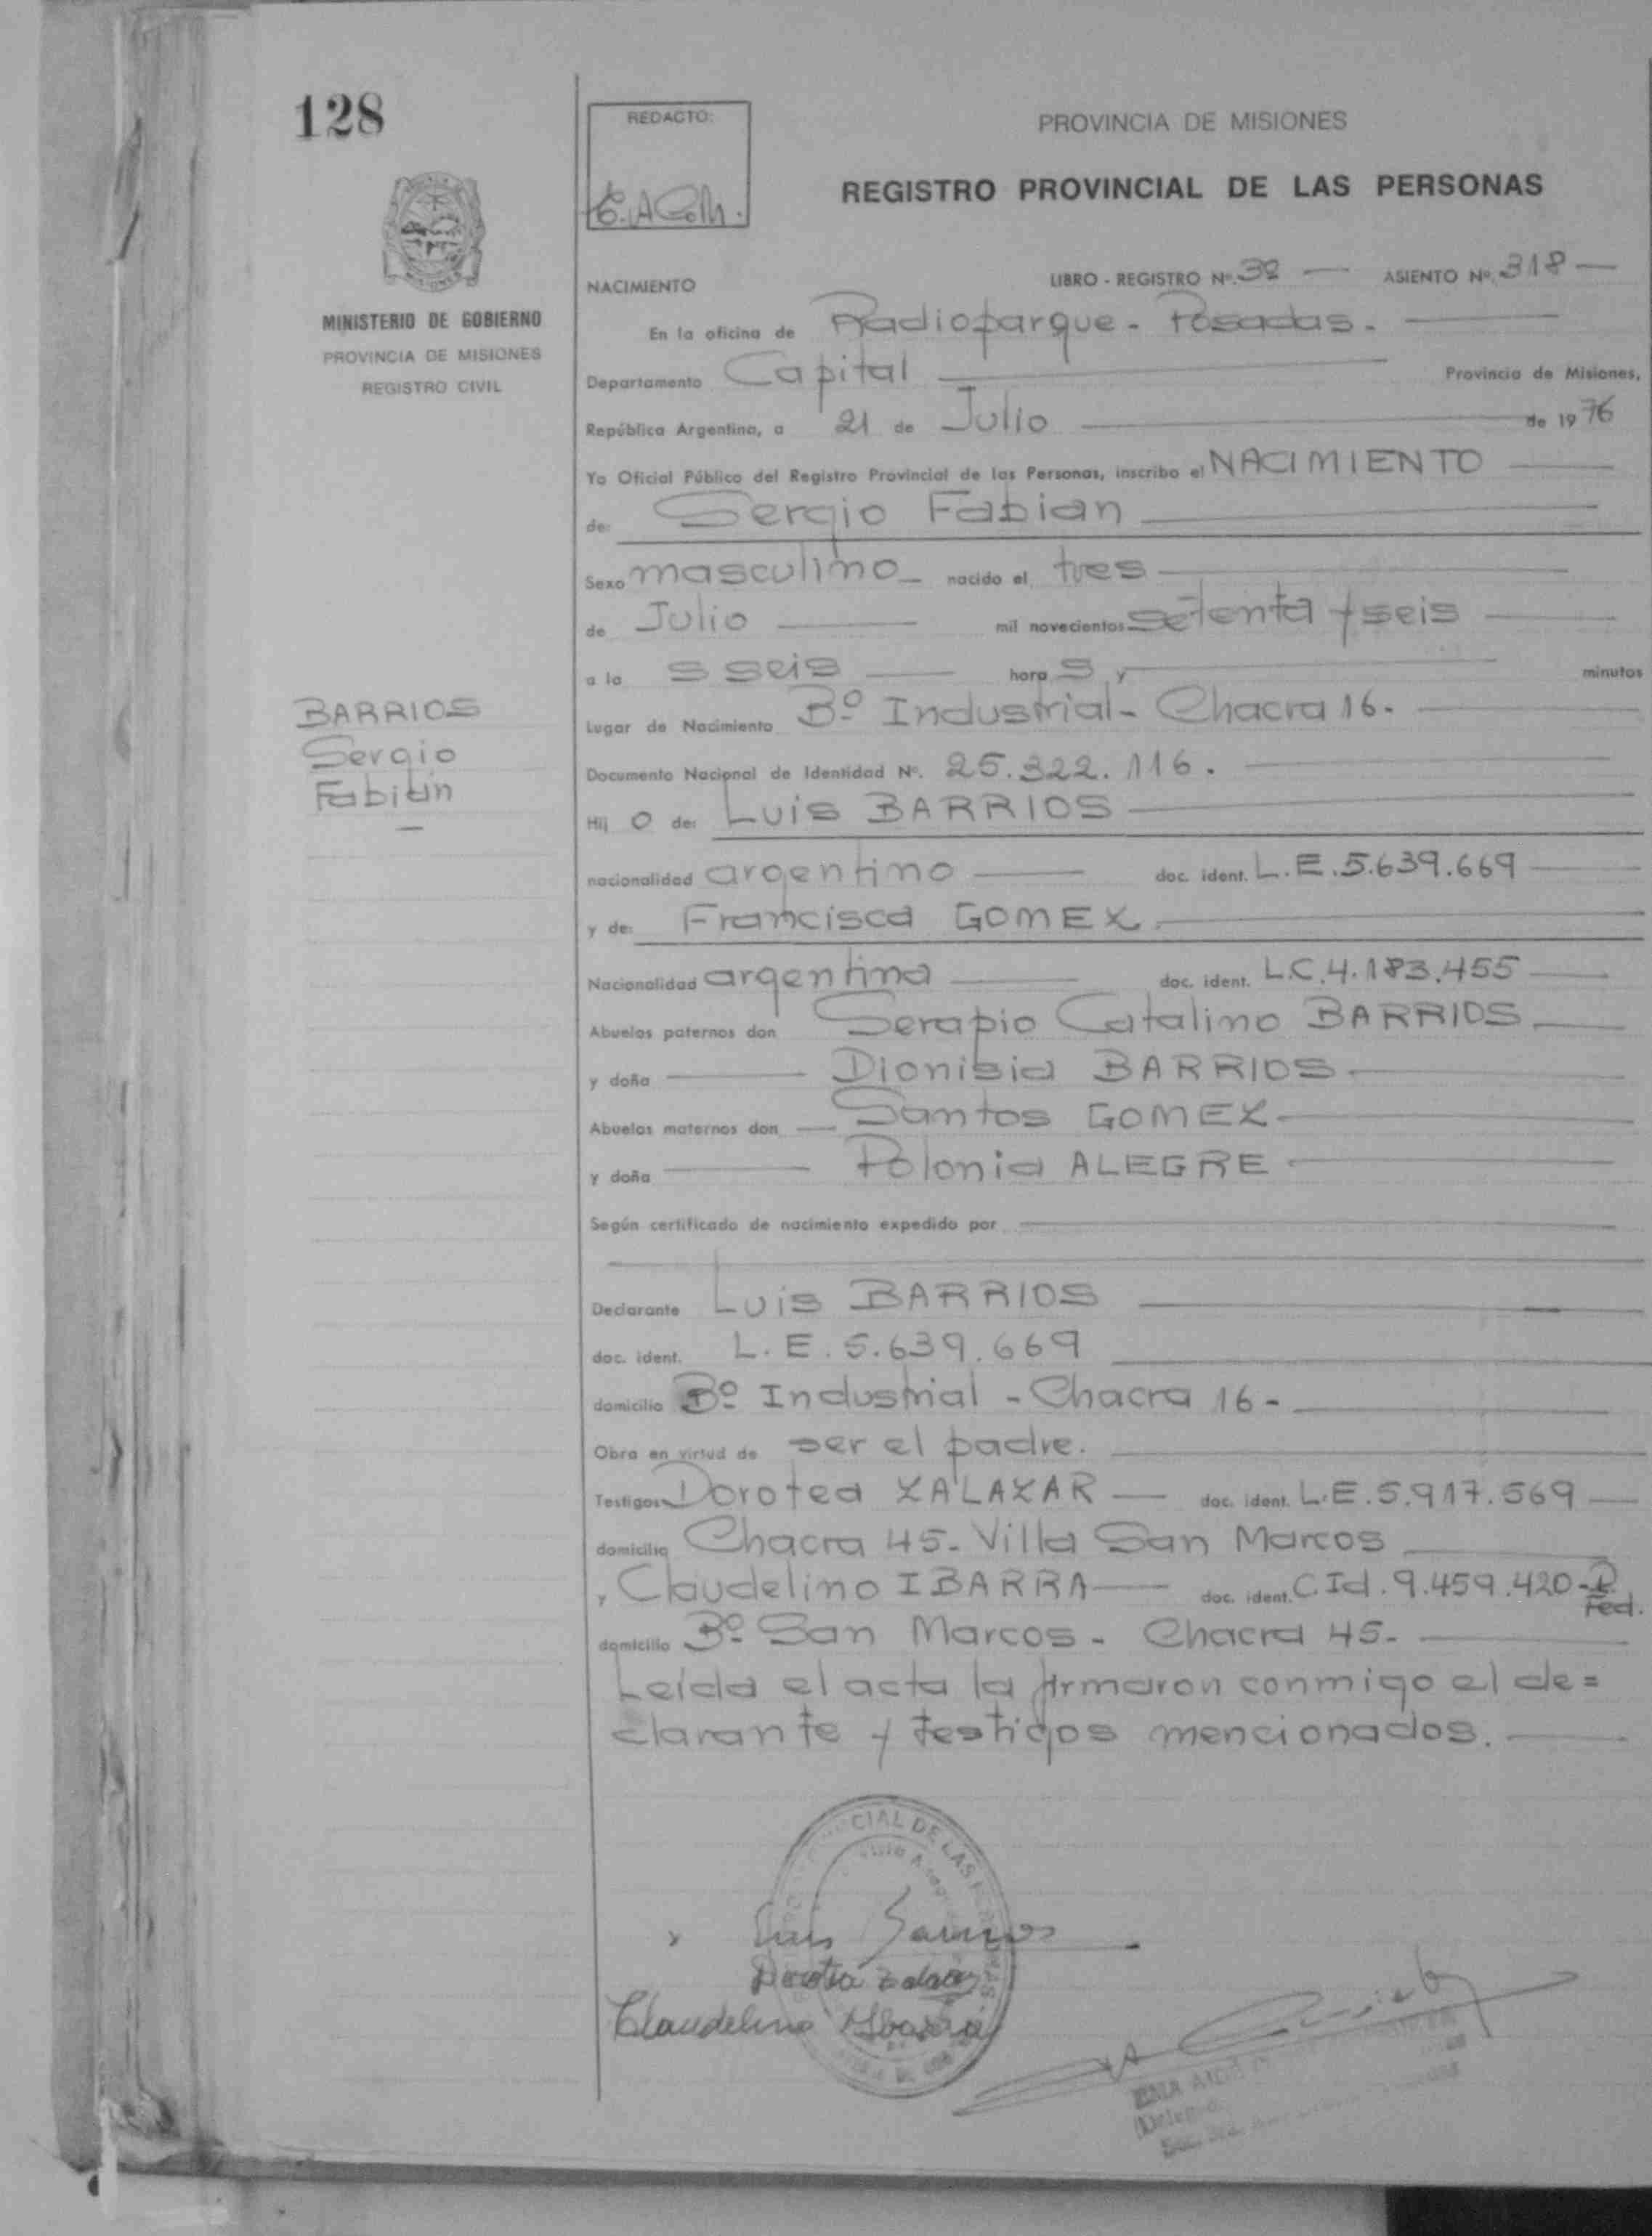 128
REDACTO:
PROVINCIA DE MISIONES
REGISTRO PROVINCIAL DE LAS PERSONAS
MINISTERIO DE GOBIERNO
PROVINCIA DE MISIONES
REGISTRO CIVIL
NACIMIENTO LIBRO - REGISTRO Nº. 3º — ASIENTO Nº. 318 —
En la oficina de Radioparque - Posadas. —
Departamento Capital — Provincia de Misiones,
República Argentina, a 21 de Julio — de 1976
Yo Oficial Público del Registro Provincial de las Personas, inscribo el NACIMIENTO —
de: Sergio Fabian —
Sexo masculino — nacido el tres —
de Julio — mil novecientos setenta y seis —
a la s seis — hora s y — minutos
BARRIOS
Sergio
Fabián
—
Lugar de Nacimiento Bº Industrial - Chacra 16. —
Documento Nacional de Identidad Nº. 25.322.116. —
Hij o de: Luis BARRIOS —
nacionalidad argentino — doc. ident. L.E.5.639.669 —
y de: Francisca GOMEZ. —
Nacionalidad argentina — doc. ident. L.C.4.183.455 —
Abuelos paternos don Serapio Catalino BARRIOS. —
y doña — Dionisia BARRIOS. —
Abuelos maternos don — Santos GOMEZ —
y doña — Polonia ALEGRE —
Según certificado de nacimiento expedido por —
Declarante Luis BARRIOS —
doc. ident. L.E.5.639.669 —
domicilio Bº Industrial - Chacra 16 - —
Obra en virtud de ser el padre. —
Testigos Dorotea ZALAZAR — doc. ident. L.E.5.917.569 —
domicilio Chacra 45. Villa San Marcos —
y Claudelino IBARRA — doc. ident. C.Id.9.459.420-P. Fed.
domicilio Bº San Marcos - Chacra 45. —
Leída el acta la firmaron conmigo el de=
clarante y testigos mencionados. —
CIAL DE LAS
Luis Barrios
Dorotea Zalazar
Claudelino Ibarra